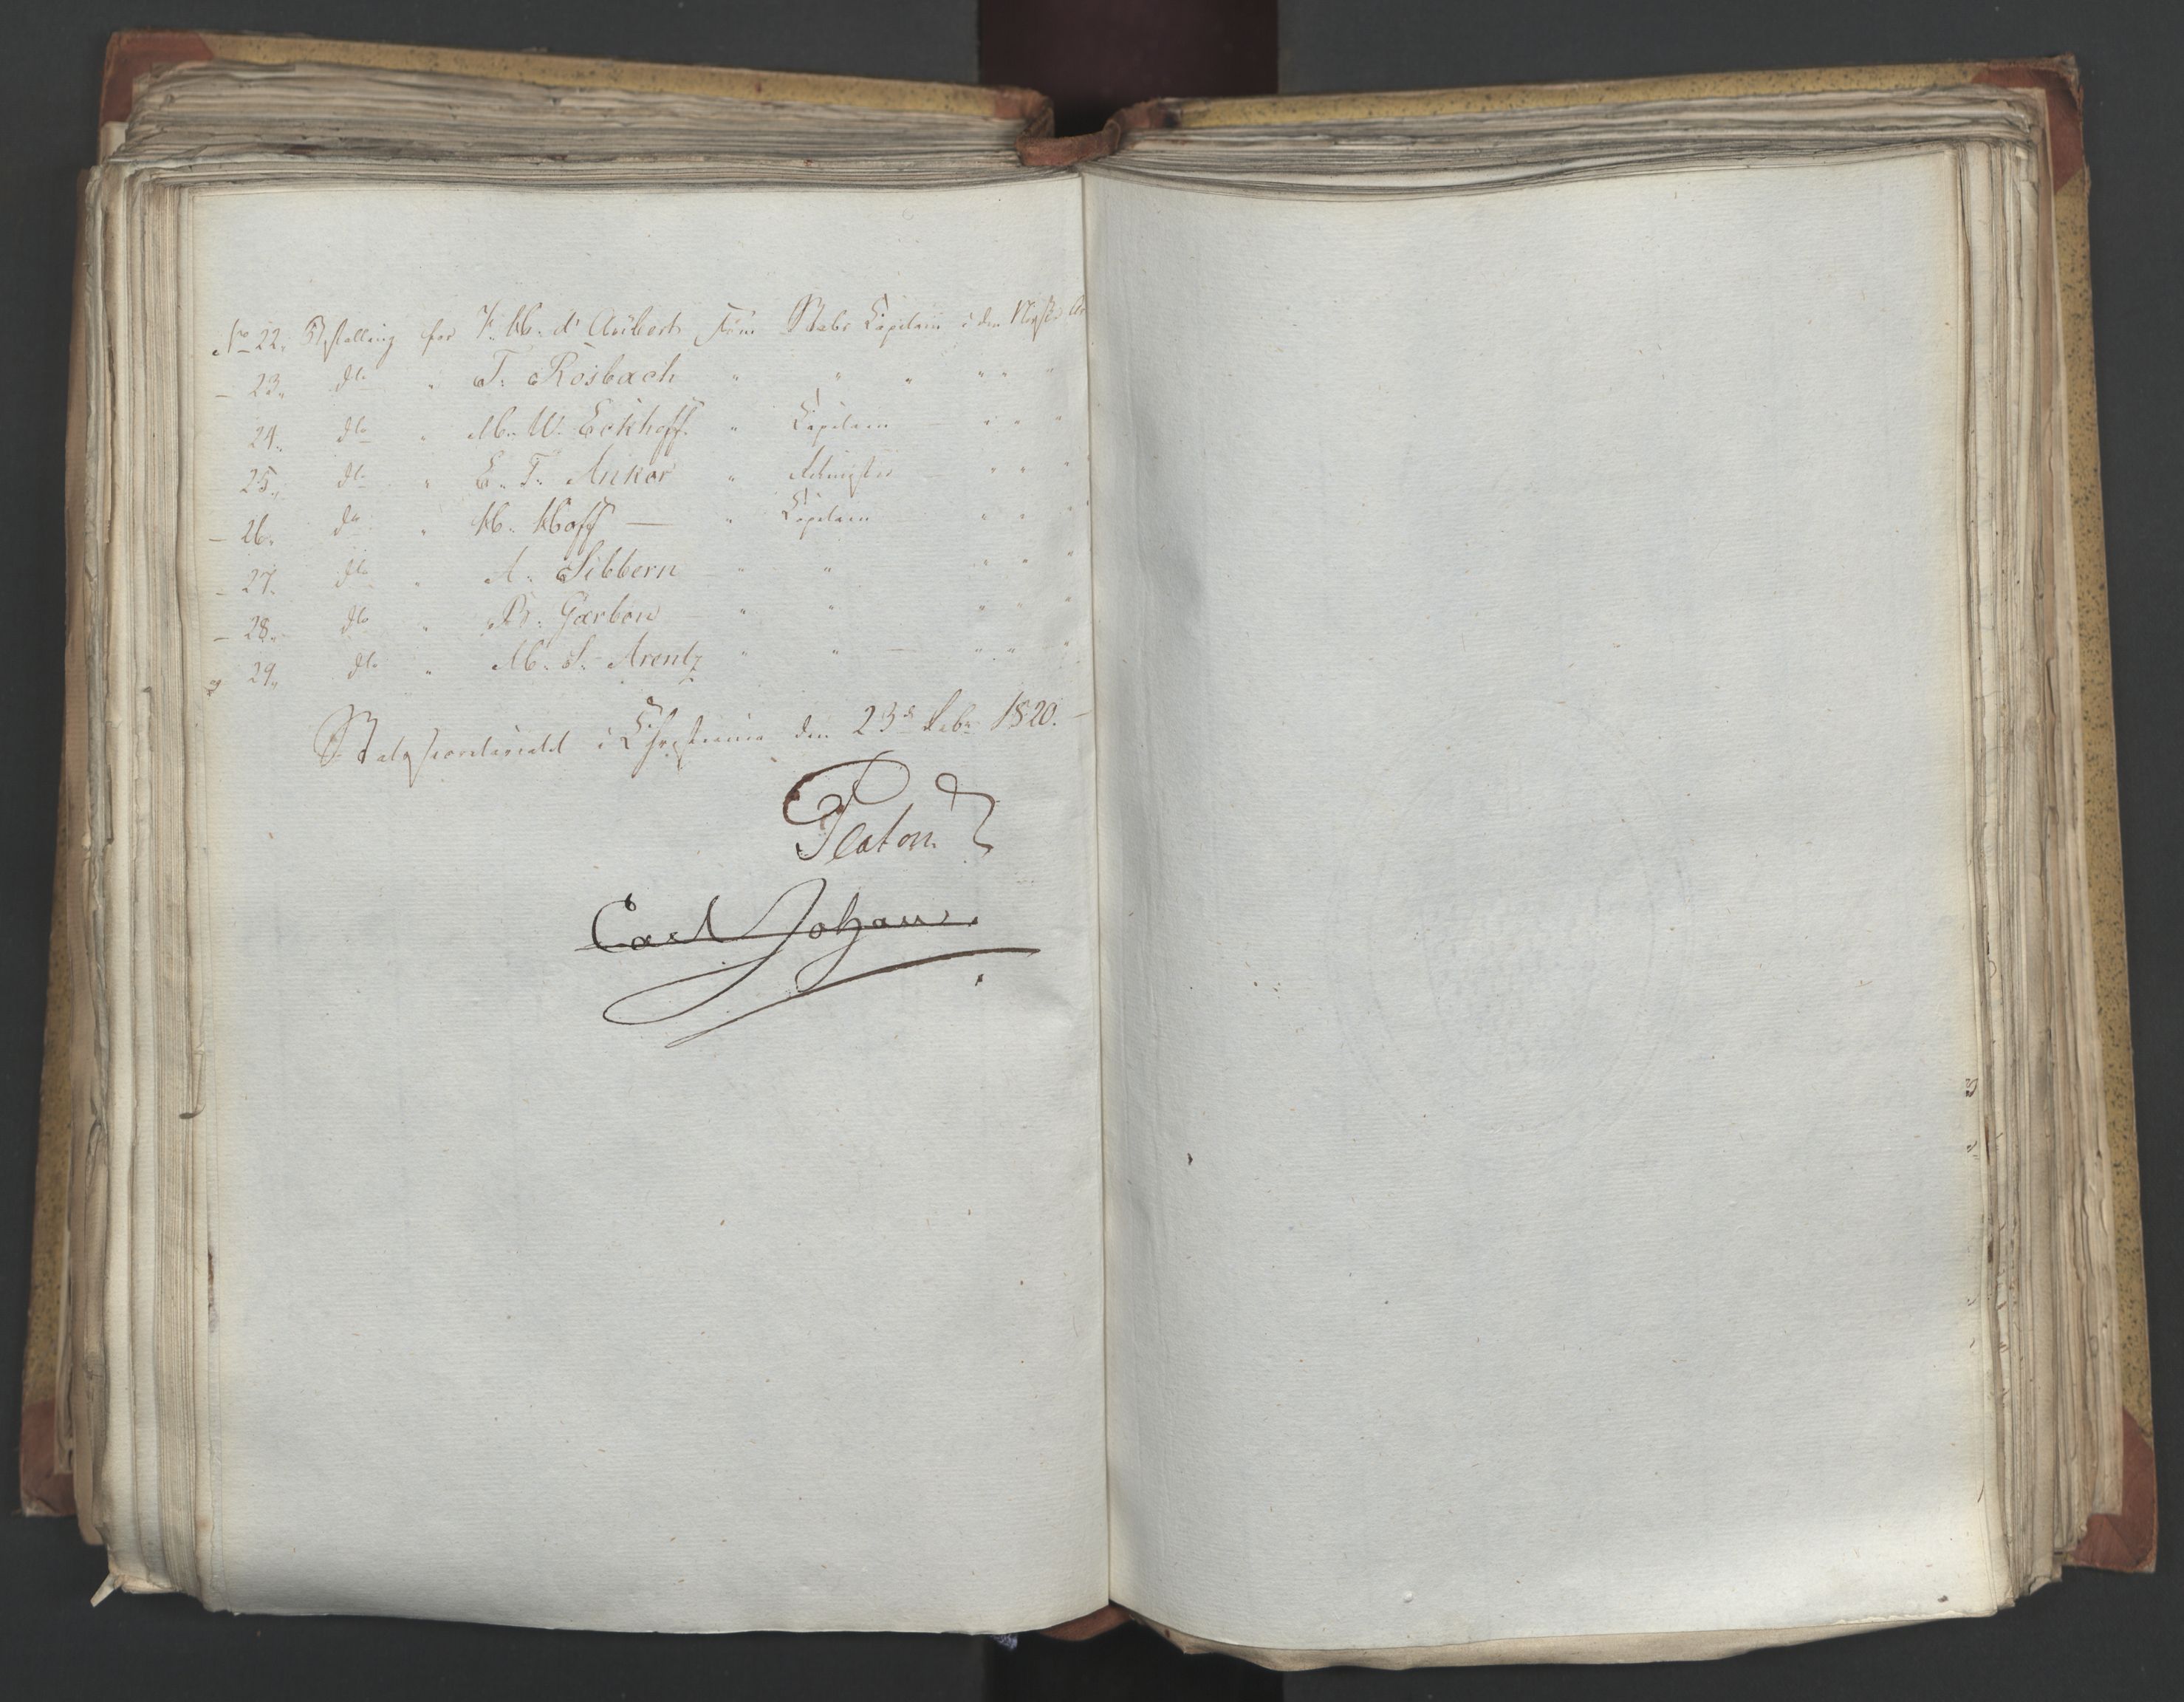 No 22. Bestalling for F. M. d'Aubert som Stabs Capitain i den Norske
- 23. do " T. Rosbach " " " " " "
24. do " M. W. Eckhoff " Capitain " " "
25. do " E. T. Anker " Ritmester " " "
- 26. do " H. Hoff — " Capitain " " "
- 27. do " A. Sibbern " " " " "
- 28. do " B. Garbon " " " " "
29. do " M. S. Arentz " " — " " "
Statssecretariatet i Christiania den 23d Febr 1820. —
Platou
Carl Johan.